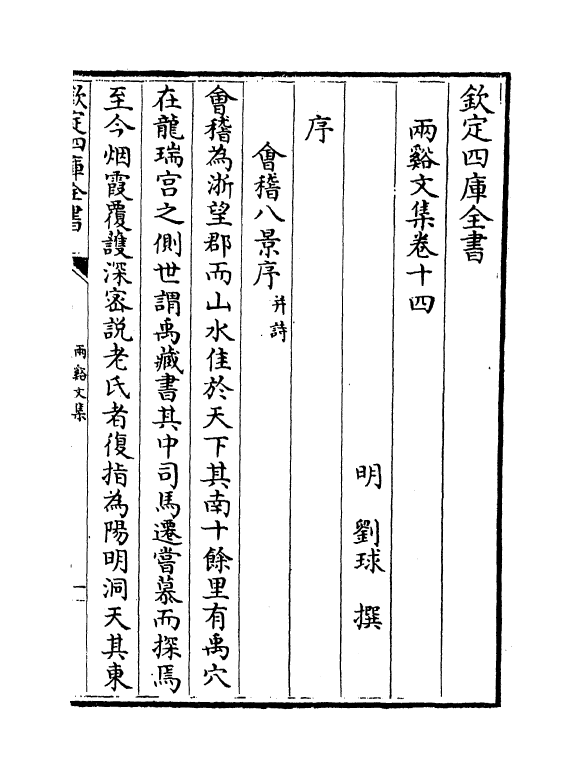 欽定四庫全書
兩谿文集卷十四
明 劉球 撰
序
會稽八景序并詩
會稽為浙望郡而山水佳於天下其南十餘里有禹穴
在龍瑞宫之側世謂禹藏書其中司馬遷嘗慕而探焉
至今烟霞覆護深密説老氏者復指為陽明洞天其東
欽定四庫全書
兩谿文集
一